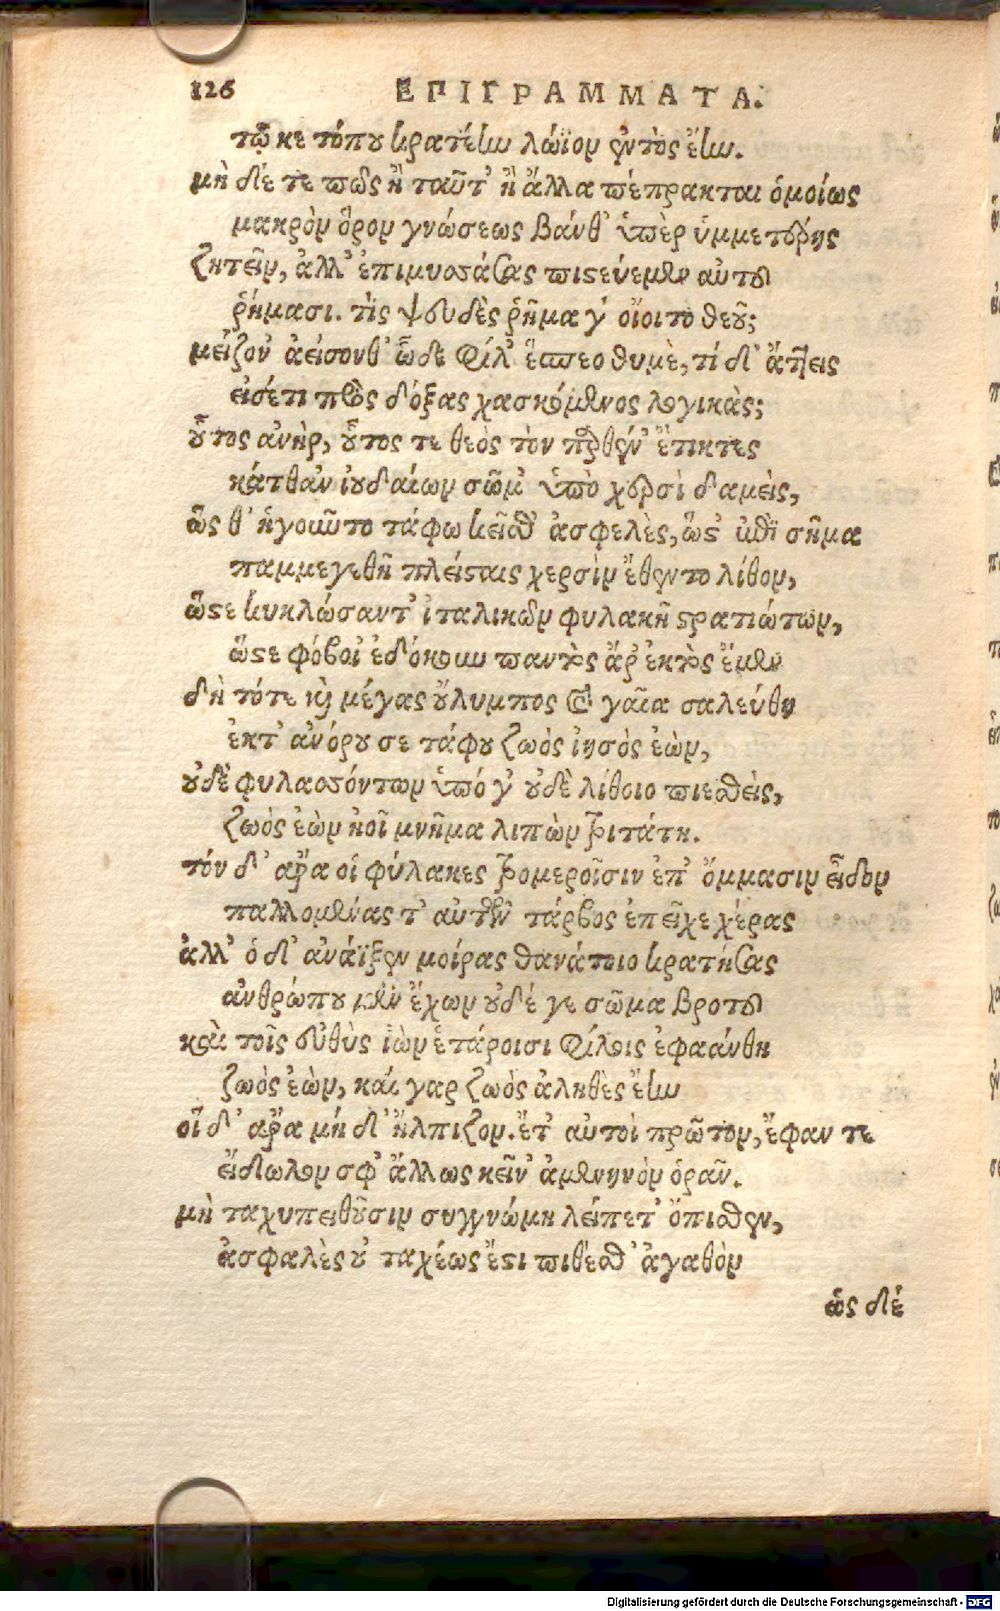 126 ΕΠΙΓΡΑΜΜΑΤΑ.
τῷ κε τόπου κρατέειν λώϊον ἐντὸς ἔειν.
μὴ δέ τε πῶς ἢ ταῦτ' ἢ ἄλλα πέπρακται ὁμοίως
μακρὸν ὅρον γνώσεως βάνθ' ὑπὲρ ὑμμετέρης
ζητεῖν, ἀλλ' ἐπιμυούσας πιστεύεμεν αὐτοῦ
ῥήμασι. τὶς ψευδὲς ῥῆμα γ' οἴοιτο θεοῦ;
μεῖζον ἀείσονθ' ὧδε φίλ' ἕσπεο θυμὲ, τί δ'
εἰσέτι πρὸς δόξας χασκόμενος λογικὰς;
οὗτος ἀνὴρ, οὗτος τε θεὸς τὸν παρθέν' ἔτικτες
κάτθαν ἰουδαίων σῶμ' ὑπὸ χερσὶ δαμεὶς,
ὥς θ' ἡγοιῶτο τάφω κεῖσθ' ἀσφελὲς, ὥς' σῆμα
παμμεγεθῆ πλείσταις χερσὶν ἔθεντο λίθον,
ὥστε κυκλώσαντ' ἰταλικῶν φυλακῆ στρατιώτων,
ὥστε φόβοἰ ἐδόκουν παντὸς ἄρ' ἐκτὸς ἔμεν
δὴ τότε καὶ μέγας οὔλυμπος καὶ γαῖα σαλεύθη
ἐκτ' ἀνόρουσε τάφου ζωὸς ἰησὸς ἐὼν,
οὐδὲ φυλασσόντων ὑπό γ' οὐδὲ λίθοιο πιεσθεὶς,
ζωὸς ἐὼν ἠοῖ μνῆμα λιπὼν τριτάτη.
τόν δ' ἄρα οἱ φύλακες τρομεροῖσιν ἐπ' ὄμμασιν εἶδον
παλλομένας τ' αὐτῶν τάρβος ἐπεῖχε χέρας
ἀλλ' ὁ δ' ἀνάϊξεν μοίρας θανάτοιο κρατήσας
ἀνθρώπου μὲν ἔχων οὐδέ γε σῶμα βροτοῦ
καὶ τοῖς εὐθὺς ἰὼν ἑτάροισι φίλοις ἐφαάνθη
ζωὸς ἐὼν, καί γαρ ζωὸς ἀληθὲς ἔειν
οἵ δ' ἄρα μήδ' ἤλπιζον. ἔτ' αὐτοὶ πρῶτον, ἔφαν τε
εἴδωλον σφ' ἄλλως κεῖν' ἀμενηνὸν ὁρᾶν.
μὴ ταχυπειθοῦσιν συγγνώμη λείπετ' ὄπισθεν,
ἀσφαλὲς οὐ ταχέως ἔστι πιθέσθ' ἀγαθὸν
ὡς δέ
Digitalisierung gefördert durch die Deutsche Forschungsgemeinschaft - DFG